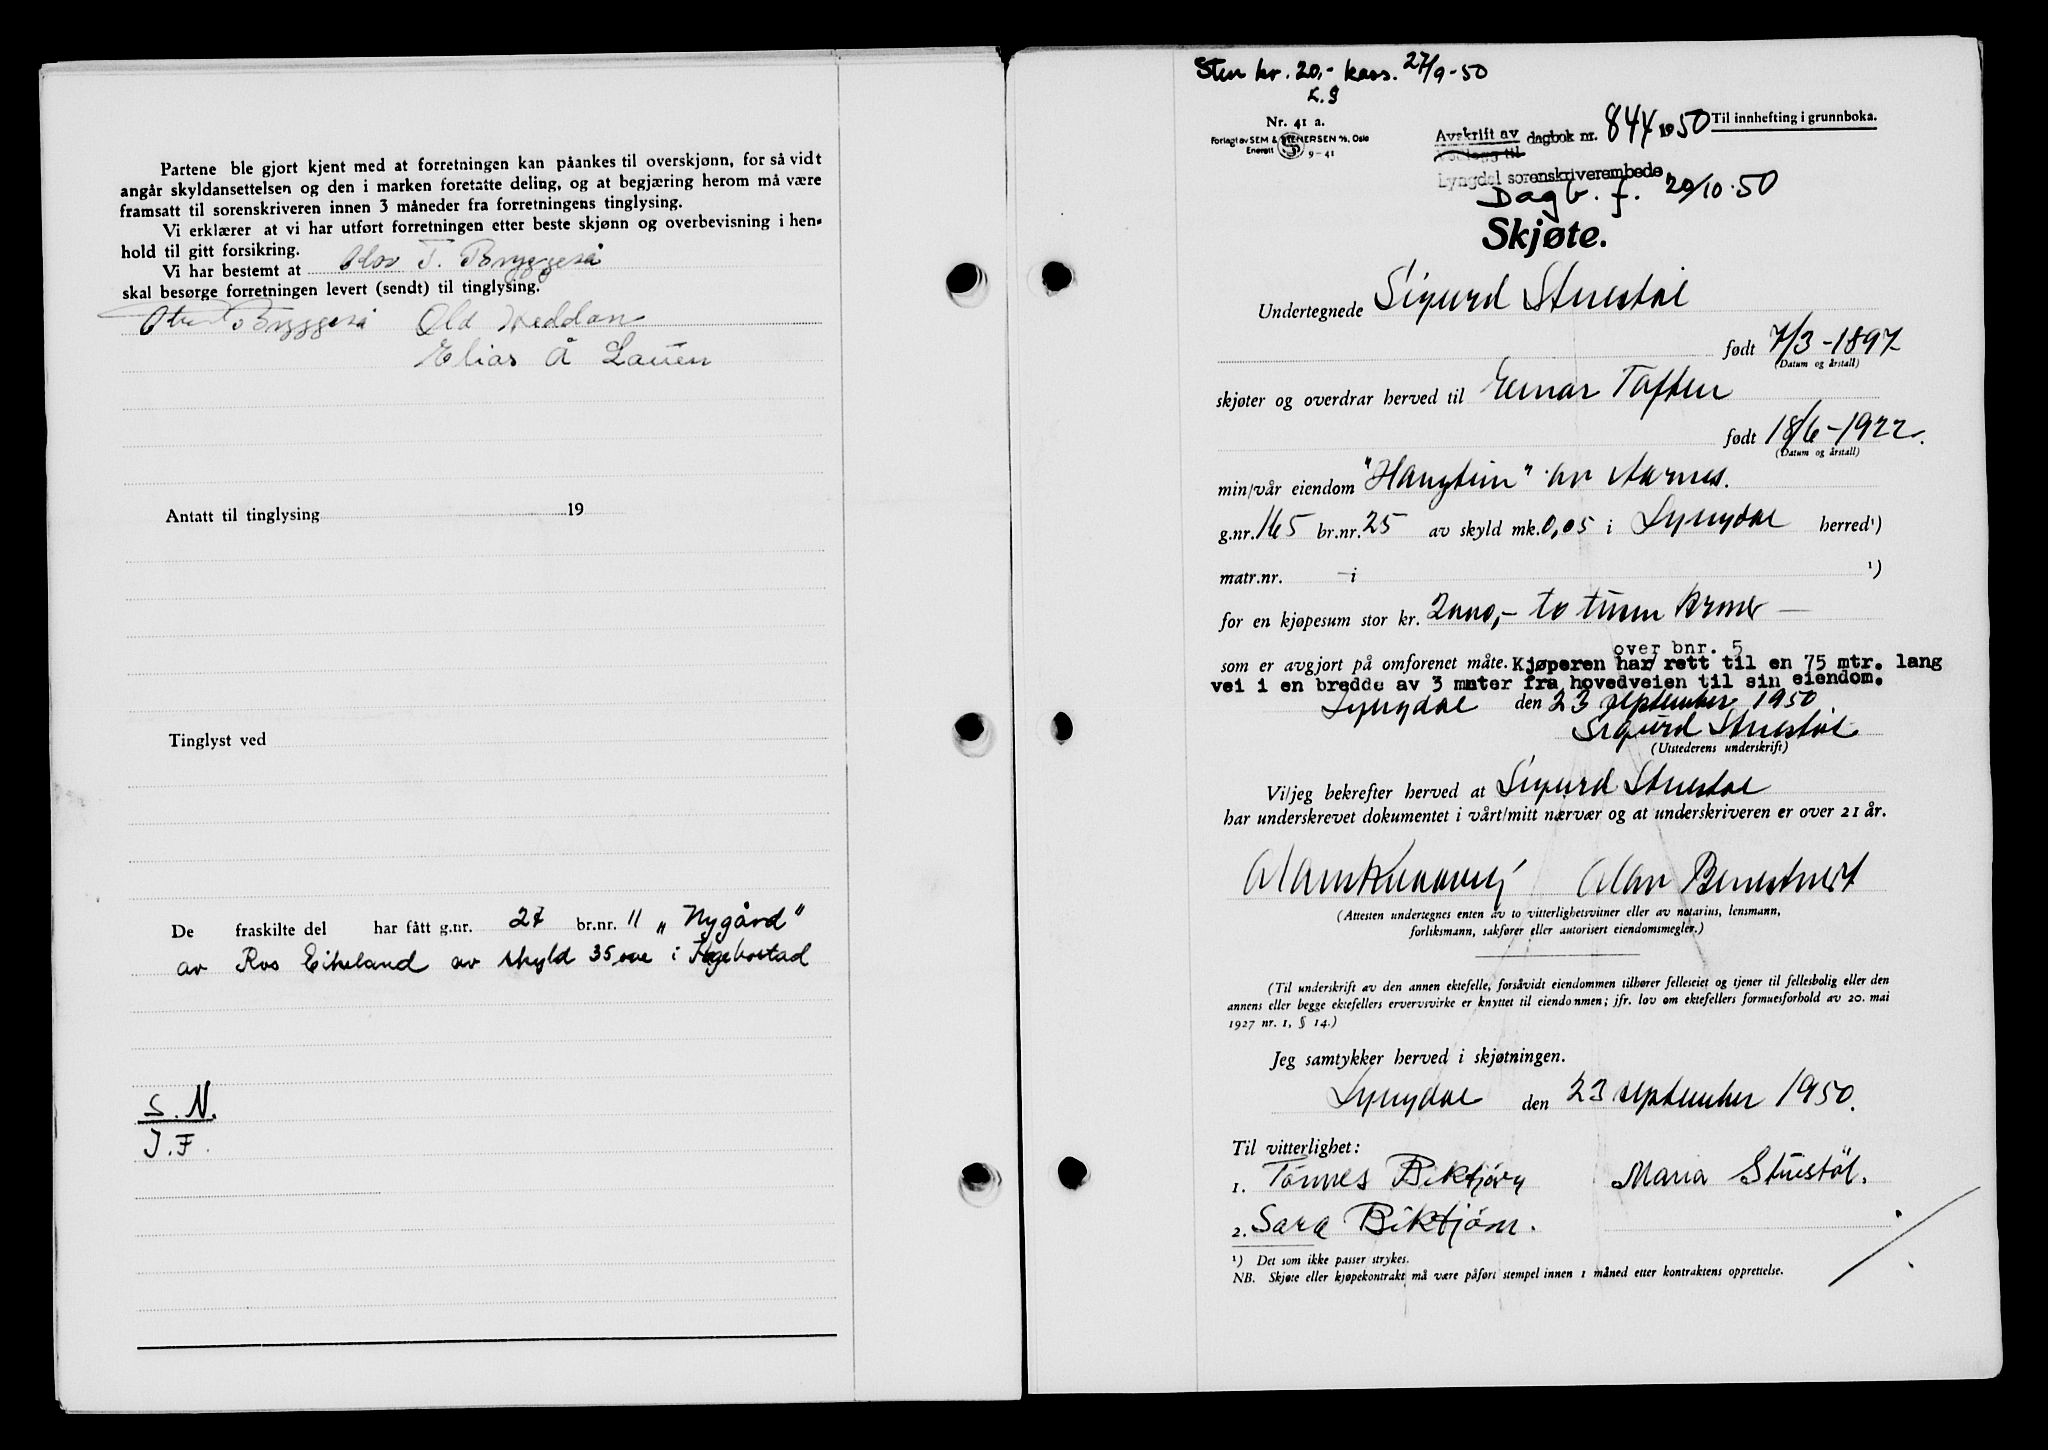 Partene ble gjort kjent med at forretningen kan påankes til overskjønn, for så vidt
angår skyldansettelsen og den i marken foretatte deling, og at begjæring herom må være
framsatt til sorenskriveren innen 3 måneder fra forretningens tinglysing.
Vi erklærer at vi har utført forretningen etter beste skjønn og overbevisning i hen-
hold til gitt forsikring.
Vi har bestemt at Olav T. Bryggeså
skal besørge forretningen levert (sendt) til tinglysing.
Bryggeså Old Heddan
Elias Å Lauen
Antatt til tinglysing 19
Tinglyst ved
De fraskilte del har fått g.nr. 27 br.nr. 11 „Nygård"
av Ros Eikeland av skyld 35 øre i Hægebostad
S. N.
J. F.
Stm kr. 20,- kass. 27/9-50
Nr. 41 a.
Forlagt av SEM & STENERSEN A/S, Oslo
Enerett S 9-41
Avskrift av dagbok nr. 844 1950 Til innhefting i grunnboka.
Vedlegg til
Lyngdal sorenskriverembede
Dagb. f. 20/10-50
Skjøte.
Undertegnede Sigurd Stuestøl
født 7/3-1897
(Datum og årstall)
skjøter og overdrar herved til Einar Toften
født 18/6-1922.
(Datum og årstall)
min/vår eiendom "Haugheim" av Aarnes.
g.nr. 165 br.nr. 25 av skyld mk. 0,05 i Lyngdal herred¹)
matr.nr. - i ¹)
for en kjøpesum stor kr. 2000,- to tusen kroner —
over bnr. 5
som er avgjort på omforenet måte. Kjøperen har rett til en 75 mtr. lang
vei i en bredde av 3 meter fra hovedveien til sin eiendom.
Lyngdal den 23 september 1950
Sigurd Stuestøl
(Utstederens underskrift)
Vi/jeg bekrefter herved at Sigurd Stuestøl
har underskrevet dokumentet i vårt/mitt nærvær og at underskriveren er over 21 år.
Olav Benestvedt
(Attesten undertegnes enten av to vitterlighetsvitner eller av notarius, lensmann,
forliksmann, sakfører eller autorisert eiendomsmegler.)
(Til underskrift av den annen ektefelle, forsåvidt eiendommen tilhører felleseiet og tjener til fellesbolig eller den
annens eller begge ektefellers ervervsvirke er knyttet til eiendommen; jfr. lov om ektefellers formuesforhold av 20. mai
1927 nr. 1, § 14.)
Jeg samtykker herved i skjøtningen.
Lyngdal den 23 september 1950.
Til vitterlighet:
1. Tønnes Birktjørn Maria Stuestøl.
2. Sara Birktjørn.
¹) Det som ikke passer strykes.
NB. Skjøte eller kjøpekontrakt må være påført stempel innen 1 måned etter kontraktens opprettelse.